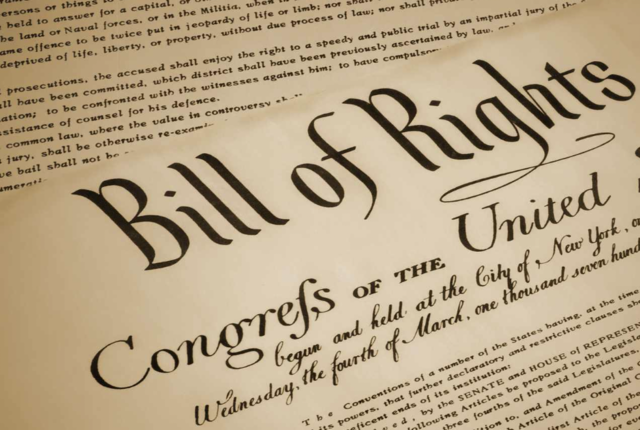 persons or things to
held to answer for a capital, or
the land or Naval forces, or in the Militia, when in
same offence to be twice put in jeopardy of life or limb; nor shall
deprived of life, liberty, or property, without due process of law; nor shall priva
prosecutions, the accused shall enjoy the right to a speedy and public trial by an impartial jury of the
all have been committed, which district shall have been previously ascertained by law,
ation; to be confronted with the witnesses against him; to have compulsor
sistance of counsel for his defence.
common law, where the value in controversy shall
jury, shall be otherwise re-exami
ve bail shall not be
Bill of Rights
Congreſs OF THE United
begun and held at the City of New York, o
Wednesday, the fourth of March, one thousand seven hund
The Conventions of a number of the States having, at the time
its powers, that further declaratory and restrictive clauses sh
neficent ends of its institution:
ved, by the SENATE and HOUSE of REPRESE
following Articles be proposed to the Legisla
three fourths of the said Legislatures
ition to, and Amendment of the
Article of the Original C